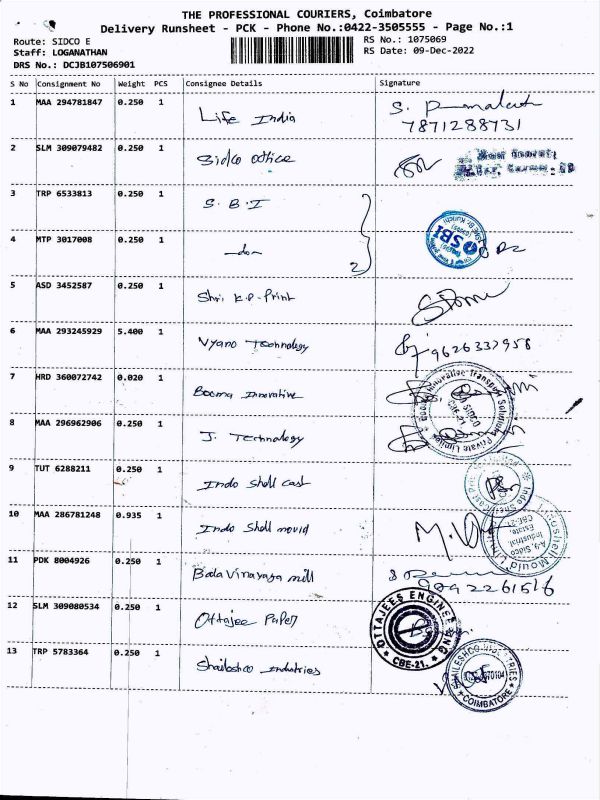 THE PROFESSIONAL COURIERS, Coimbatore
Delivery Runsheet - PCK - Phone No.:0422-3505555 - Page No.:1
Route: SIDCO E RS No.: 1075069
Staff: LOGANATHAN RS Date: 09-Dec-2022
DRS No.: DCJB107506901
S No Consignment No Weight PCS Consignee Details Signature
1 MAA 294781847 0.250 1 Life India
7871288731
2 SLM 309079482 0.250 1 Sidco office
3 TRP 6533813 0.250 1 S.B.I
SBI
4 MTP 3017008 0.250 1 -do- 2
5 ASD 3452587 0.250 1 Shri K.P. Print
6 MAA 293245929 5.400 1 Vyano Technology 9626337958
7 HRD 360072742 0.020 1 Booma Innovative
Booma Innovative Transport Solutions Private Limited
SIDCO
CBE-21
8 MAA 296962906 0.250 1 J. Technology
9 TUT 6288211 0.250 1 Indo Shell Cast
10 MAA 286781248 0.935 1 Indo Shell mould
A/9, Sidco
Industrial
Estate
CBE-21
11 PDK 8004926 0.250 1 Bala Vinayaga mill
9092261516
12 SLM 309080534 0.250 1 Ottajee Paper
OTTAJEES ENGINEERING
CBE-21.
13 TRP 5783364 0.250 1 Shaileshco Industries
SHAILESHCO INDUSTRIES
COIMBATORE